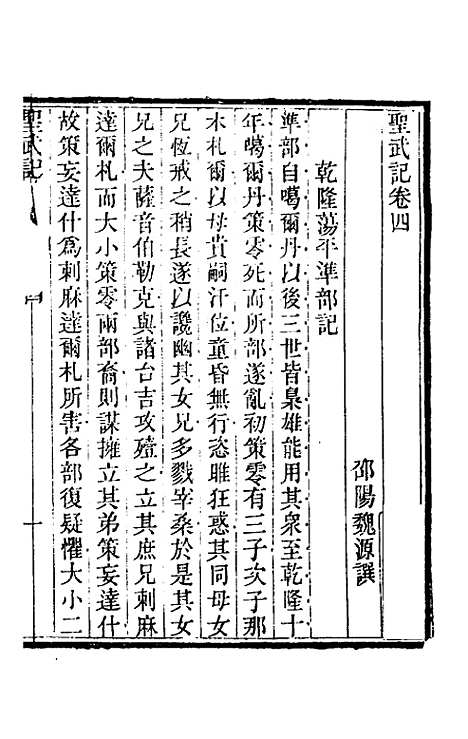 聖武記卷四
邵陽魏源譔
乾隆蕩平準部記
準部自噶爾丹以後三世皆梟雄能用其衆至乾隆十
年噶爾丹策零死而所部遂亂初策零有三子次子那
木札爾以母貴嗣汗位童昏無行恣睢狂惑其同母女
兄恆戒之稍長遂以讒幽其女兄多戮宰桑於是其女
兄之夫薩音伯勒克與諸台吉攻殪之立其庶兄剌麻
達爾札而大小策零兩部裔則謀擁立其弟策妄達什
故策妄達什爲剌麻達爾札所害各部復疑懼大小二
聖武記
一